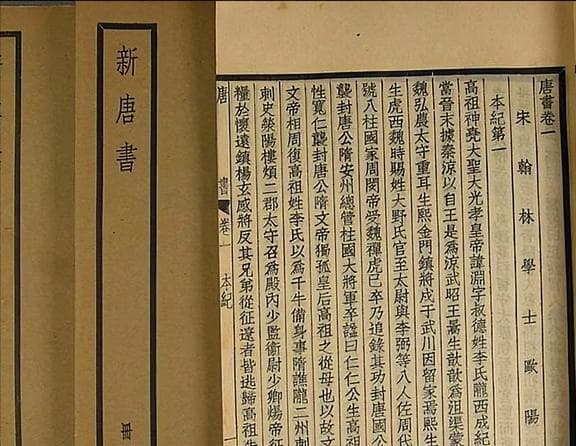 唐書卷一
宋翰林學士歐陽
本紀第一
高祖神堯大聖大光孝皇帝諱淵字叔德姓李氏隴西成紀
當晉末據秦涼以自王是為涼武昭王暠生歆歆為沮渠蒙
魏弘農太守重耳生熙金門鎮將戍于武川因留家焉熙
生虎西魏時賜姓大野氏官至太尉與李弼等八人佐周
號八柱國家周閔帝受魏禪虎已卒乃追錄其功封唐國公
襲封唐公隋安州總管柱國大將軍卒諡曰仁仁公生高
性寬仁襲封唐公隋文帝獨孤皇后高祖之從母也以故文
文帝相周復高祖姓李氏以為千牛備身事隋譙隴二州刺
刺史滎陽樓煩二郡太守召為殿內少監衛尉少卿煬帝征
糧於懷遠鎮楊玄感將反其兄弟從征遼者皆逃歸高祖
唐書卷一 本紀
新唐書
冊